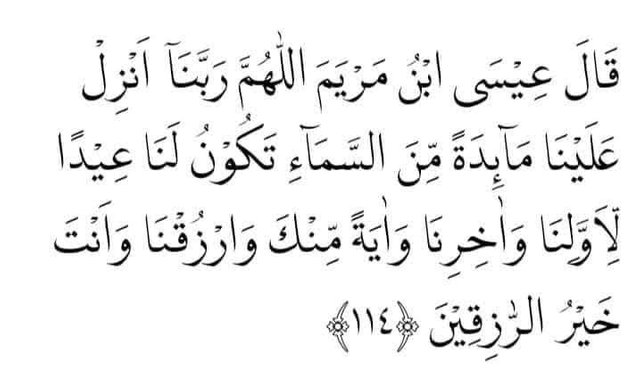 قَالَ عِيْسَى ابْنُ مَرْيَمَ اللّٰهُمَّ رَبَّنَآ اَنْزِلْ
عَلَيْنَا مَآىِٕدَةً مِّنَ السَّمَآءِ تَكُوْنُ لَنَا عِيْدًا
لِّاَوَّلِنَا وَاٰخِرِنَا وَاٰيَةً مِّنْكَ وَارْزُقْنَا وَاَنْتَ
خَيْرُ الرّٰزِقِيْنَ ﴿١١٤﴾